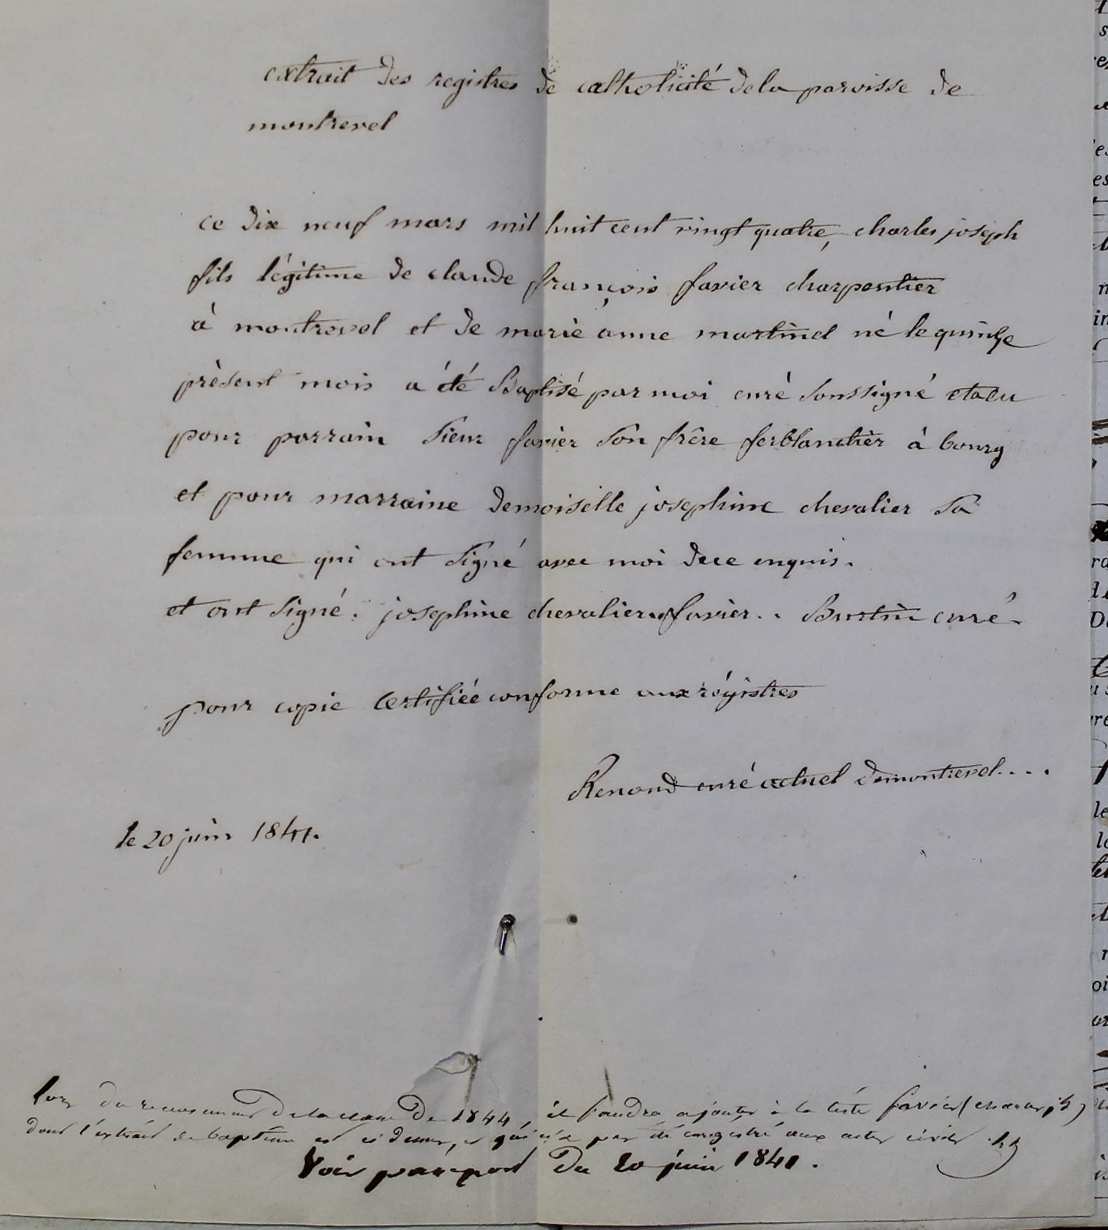 extrait des registres de catholicité de la paroisse de
montrevel
ce dix neuf mars mil huit cent vingt quatre, charles joseph
fils légitime de claude françois favier charpentier
à montrevel et de marie anne martinet né le quinze
présent mois a été Baptisé par moi curé soussigné et a eu
pour parrain sieur favier son frère ferblantier à bourg
et pour marraine demoiselle josephine chevalier sa
femme qui ont signé avec moi de ce enquis.
et ont signé. josephine chevalier favier.. curé
pour copie certifiée conforme aux régistres
Renoud curé actuel de montrevel....
le 20 juin 1841.
lors du recensement de la classe de 1844, il faudra ajouter à la liste favier (charles jh)
dont l'extrait de baptême est ci dessus, et qui n'a pas été enregistré aux actes civils
Voir passeport du 20 juin 1841.